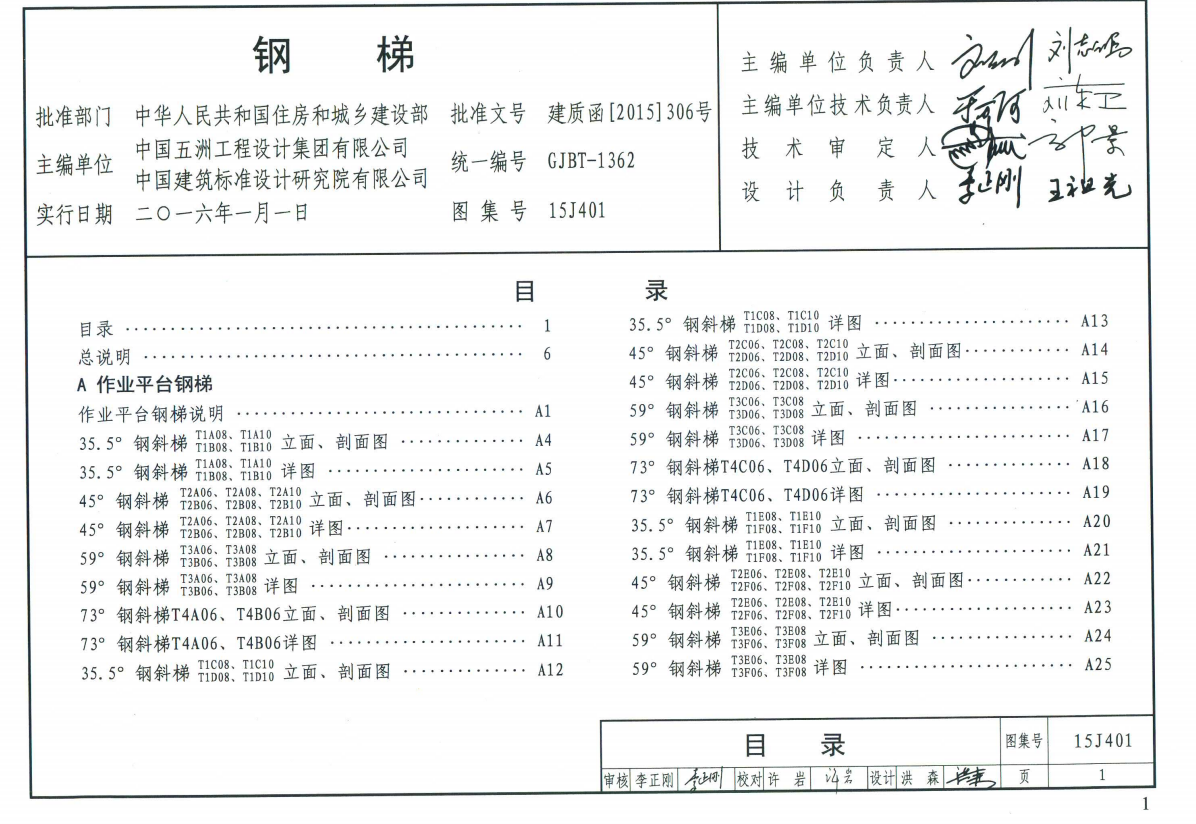 钢 梯
批准部门 中华人民共和国住房和城乡建设部 批准文号 建质函[2015]306号
主编单位 中国五洲工程设计集团有限公司
中国建筑标准设计研究院有限公司 统一编号 GJBT-1362
实行日期 二〇一六年一月一日 图集号 15J401
主编单位负责人 刘志鸿
主编单位技术负责人
技术审定人
设计负责人 李正刚 王祖光
目 录
目录 ································ 1
总说明 ································ 6
A 作业平台钢梯
作业平台钢梯说明 ························ A1
35.5° 钢斜梯 T1A08、T1A10 T1B08、T1B10 立面、剖面图 ············ A4
35.5° 钢斜梯 T1A08、T1A10 T1B08、T1B10 详图 ················ A5
45° 钢斜梯 T2A06、T2A08、T2A10 T2B06、T2B08、T2B10 立面、剖面图·········· A6
45° 钢斜梯 T2A06、T2A08、T2A10 T2B06、T2B08、T2B10 详图·············· A7
59° 钢斜梯 T3A06、T3A08 T3B06、T3B08 立面、剖面图 ············ A8
59° 钢斜梯 T3A06、T3A08 T3B06、T3B08 详图 ················ A9
73° 钢斜梯T4A06、T4B06立面、剖面图 ············ A10
73° 钢斜梯T4A06、T4B06详图 ················ A11
35.5° 钢斜梯 T1C08、T1C10 T1D08、T1D10 立面、剖面图 ············ A12
35.5° 钢斜梯 T1C08、T1C10 T1D08、T1D10 详图 ················ A13
45° 钢斜梯 T2C06、T2C08、T2C10 T2D06、T2D08、T2D10 立面、剖面图·········· A14
45° 钢斜梯 T2C06、T2C08、T2C10 T2D06、T2D08、T2D10 详图·············· A15
59° 钢斜梯 T3C06、T3C08 T3D06、T3D08 立面、剖面图 ············ A16
59° 钢斜梯 T3C06、T3C08 T3D06、T3D08 详图 ················ A17
73° 钢斜梯T4C06、T4D06立面、剖面图 ············ A18
73° 钢斜梯T4C06、T4D06详图 ················ A19
35.5° 钢斜梯 T1E08、T1E10 T1F08、T1F10 立面、剖面图 ············ A20
35.5° 钢斜梯 T1E08、T1E10 T1F08、T1F10 详图 ················ A21
45° 钢斜梯 T2E06、T2E08、T2E10 T2F06、T2F08、T2F10 立面、剖面图·········· A22
45° 钢斜梯 T2E06、T2E08、T2E10 T2F06、T2F08、T2F10 详图·············· A23
59° 钢斜梯 T3E06、T3E08 T3F06、T3F08 立面、剖面图 ············ A24
59° 钢斜梯 T3E06、T3E08 T3F06、T3F08 详图 ················ A25
目 录 图集号 15J401
审核 李正刚 李正刚 校对 许 岩 许岩 设计 洪 森 洪森 页 1
1